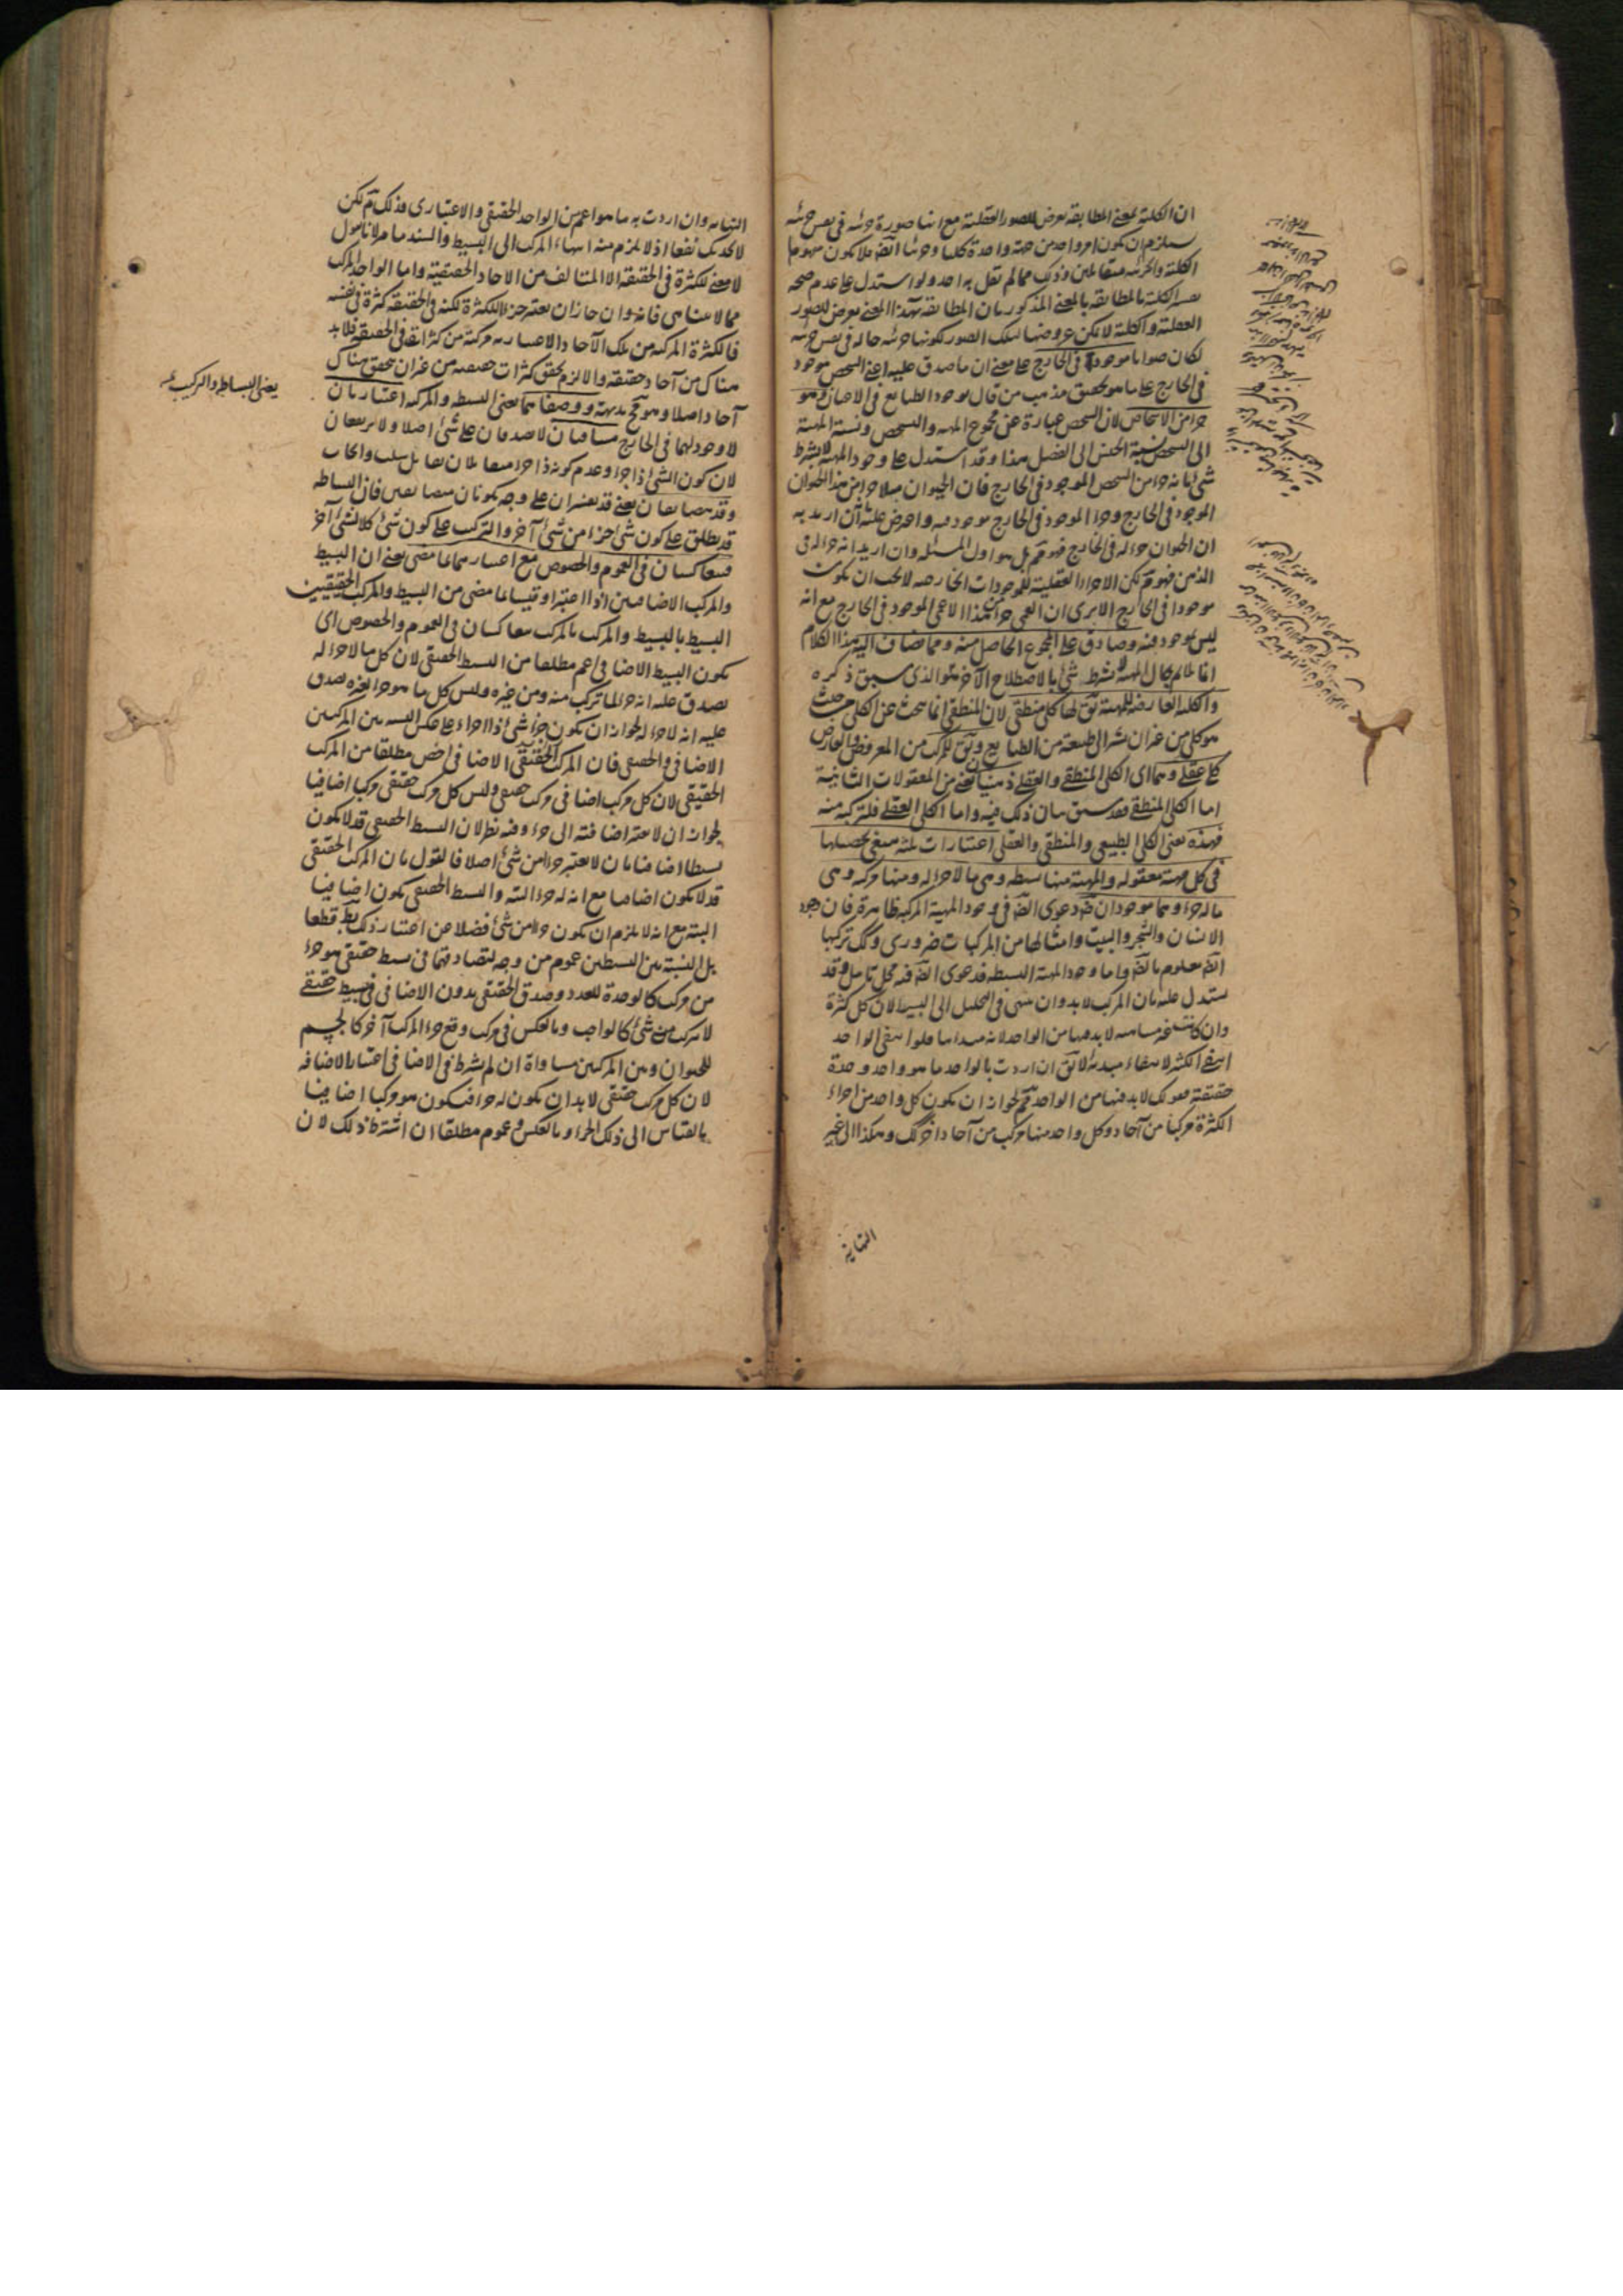 ان الكلية بمعنى المطابقة تعرض للصور العقلية مع انها صورة جزئية في نفس جزئية
يستلزم ان يكون امر واحد من جهة واحدة كليا وجزئيا
الكلية والجزئية متقابلين وذلك مما لم يقل به احد ولو استدل على عدم صحة
تفسير الكلية بالمطابقة بالمعنى المذكور بان المطابقة بهذا المعنى تعرض للصور
العقلية والكلية لا يمكن عروضها لتلك الصور لكونها جزئية حالة في نفس جزئية
لكان صوابا موجودة في الخارج على معنى ان ما صدق عليه اعنى الشخص موجود
في الخارج على ما هو تحقيق مذهب من قال بوجود الطبايع في الاعيان وهو
جزء من الاشخاص لان الشخص عبارة عن مجموع المهية والتشخص ونسبة المهية
الى التشخص نسبة الجنس الى الفصل هذا وقد استدل على وجود المهية لا بشرط
شئ بانه جزء من الشخص الموجود في الخارج فان الحيوان مثلا جزء من هذا الحيوان
الموجود في الخارج وجزء الموجود في الخارج موجود فيه واعترض عليه ان اريد به
ان الحيوان جزء له في الخارج فهو مم بل هو اول المسئلة وان اريد انه جزء له في
الذهن فهو مم لكن الاجزاء العقلية للموجودات الخارجية لا يجب ان يكون
موجودا في الخارج الا يرى ان العمى جزء لهذا الاعمى الموجود في الخارج مع انه
ليس بموجود فيه وصادق على المجموع الحاصل منه ومما يضاف اليه هذا الكلام
انما يلايم حال المهية بشرط شئ بالاصطلاح الآخر الذى سبق ذكره
والكلية العارضة للمهية يق لها كلي منطقي لان المنطقي انما يبحث عن الكلى من حيث
هو كلي من غير ان يشير الى طبيعة من الطبايع ويق للمركب من المعروض والعارض
كلي عقلي وهما اى الكلى المنطقي والعقلي ذهنيان يعنى من المعقولات الثانية
اما الكلى المنطقي فقد سبق بيان ذلك فيه واما الكلى العقلي فلتركبه منه
فهذه يعنى الكلى الطبيعى والمنطقى والعقلى اعتبارات ثلثة ينبغى تحصيلها
في كل مهية معقولة والمهية منها بسيطة وهى ما لا جزء له ومنها مركبة وهى
ما له جزء وهما موجودان ضرورة دعوى الضرورة في وجود المهية المركبة ظاهرة فان وجود
الانسان والشجر والبيت وامثالها من المركبات ضرورى وكك تركبها
ايضا معلوم بالضرورة واما وجود المهية البسيطة فدعوى الضرورة فيه محل تامل وقد
يستدل عليه بان المركب لا بد وان ينتهى في التحليل الى البسيط لان كل كثرة
وان كانت غير متناهية لا بد فيها من الواحد لانه مبداها فلو انتفى الواحد
انتفى الكثرة لانتفاء مبدئه لا يق ان اردت بالواحد ما هو واحد وحدة
حقيقية فقولك لا بد فيها من الواحد مم لجواز ان يكون كل واحد من اجزاء
الكثرة مركبا من آحاد وكل واحد منها مركب من آحاد اخر كك وهكذا الى غير
النهاية
النهاية وان اردت به ما هو اعم من الواحد الحقيقى والاعتبارى فذلك مم لكن
لا يجديك نفعا اذ لا يلزم منه انتهاء المركب الى البسيط والسند ما مر لانا نقول
لا معنى للكثرة في الحقيقة الا المتالف من الآحاد الحقيقية واما الواحد المركب
مما لا يتناهى فانه وان جاز ان يعتبر جزءا للكثرة لكنه في الحقيقة كثرة في نفسه
فالكثرة المركبة من تلك الآحاد الاعتبارية مركبة من كثرات في الحقيقة فلا بد
هناك من آحاد حقيقية والا لزم تحقق كثرات حقيقية من غير ان يتحقق هناك
آحاد اصلا وهو مح بديهة ووصفاهما يعنى البسيط والمركب اعتباريان
لا وجود لهما في الخارج متنافيان لا يصدقان على شئ اصلا ولا يرتفعان
لان كون الشئ ذا جزء وعدم كونه ذا جزء متقابلان تقابل سلب وايجاب
وقد يتضايفان يعنى قد يفسران على وجه يكونان متضايفين فان البساطة
قد يطلق على كون شئ جزءا من شئ آخر والتركب على كون شئ كلا لشئ آخر
فيتعاكسان في العموم والخصوص مع اعتبارهما بما مضى يعنى ان البسيط
والمركب الاضافيين اذا اعتبرا وقيسا بما مضى من البسيط والمركب الحقيقيين
البسيط بالبسيط والمركب بالمركب تعاكسان في العموم والخصوص اى
يكون البسيط الاضافى اعم مطلقا من البسيط الحقيقى لان كل ما لا جزء له
يصدق عليه انه جزء لما تركب منه ومن غيره وليس كل ما هو جزء لغيره يصدق
عليه انه لا جزء له لجواز ان يكون جزء شئ ذا اجزاء على عكس النسبة بين المركبين
الاضافى والحقيقى فان المركب الاضافى اخص مطلقا من المركب
الحقيقى لان كل مركب اضافى مركب حقيقى وليس كل مركب حقيقى مركبا اضافيا
لجواز ان لا يعتبر اضافته الى جزء وفيه نظر لان البسيط الحقيقى قد لا يكون
بسيطا اضافيا بان لا يعتبر جزءا من شئ اصلا فالقول بان المركب الحقيقى
قد لا يكون اضافيا مع انه له جزء البتة والبسيط الحقيقى يكون اضافيا
البتة مع انه لا يلزم ان يكون جزءا من شئ فضلا عن اعتبار ذلك بط قطعا
بل النسبة بين البسيطين عموم من وجه لتصادقهما في بسيط حقيقى هو جزء
من مركب كالوحدة للعدد وصدق الحقيقى بدون الاضافى في بسيط حقيقى
لا يتركب منه شئ كالواجب وبالعكس في مركب وقع جزءا لمركب آخر كالجسم
للحيوان وبين المركبين مساواة ان لم يشترط في الاضافى اعتبار الاضافة
لان كل مركب حقيقى لا بد ان يكون له جزء فيكون هو مركبا اضافيا
بالقياس الى ذلك الجزء وبالعكس وعموم مطلقا ان اشترط ذلك لان
يعنى البساطة والتركيب